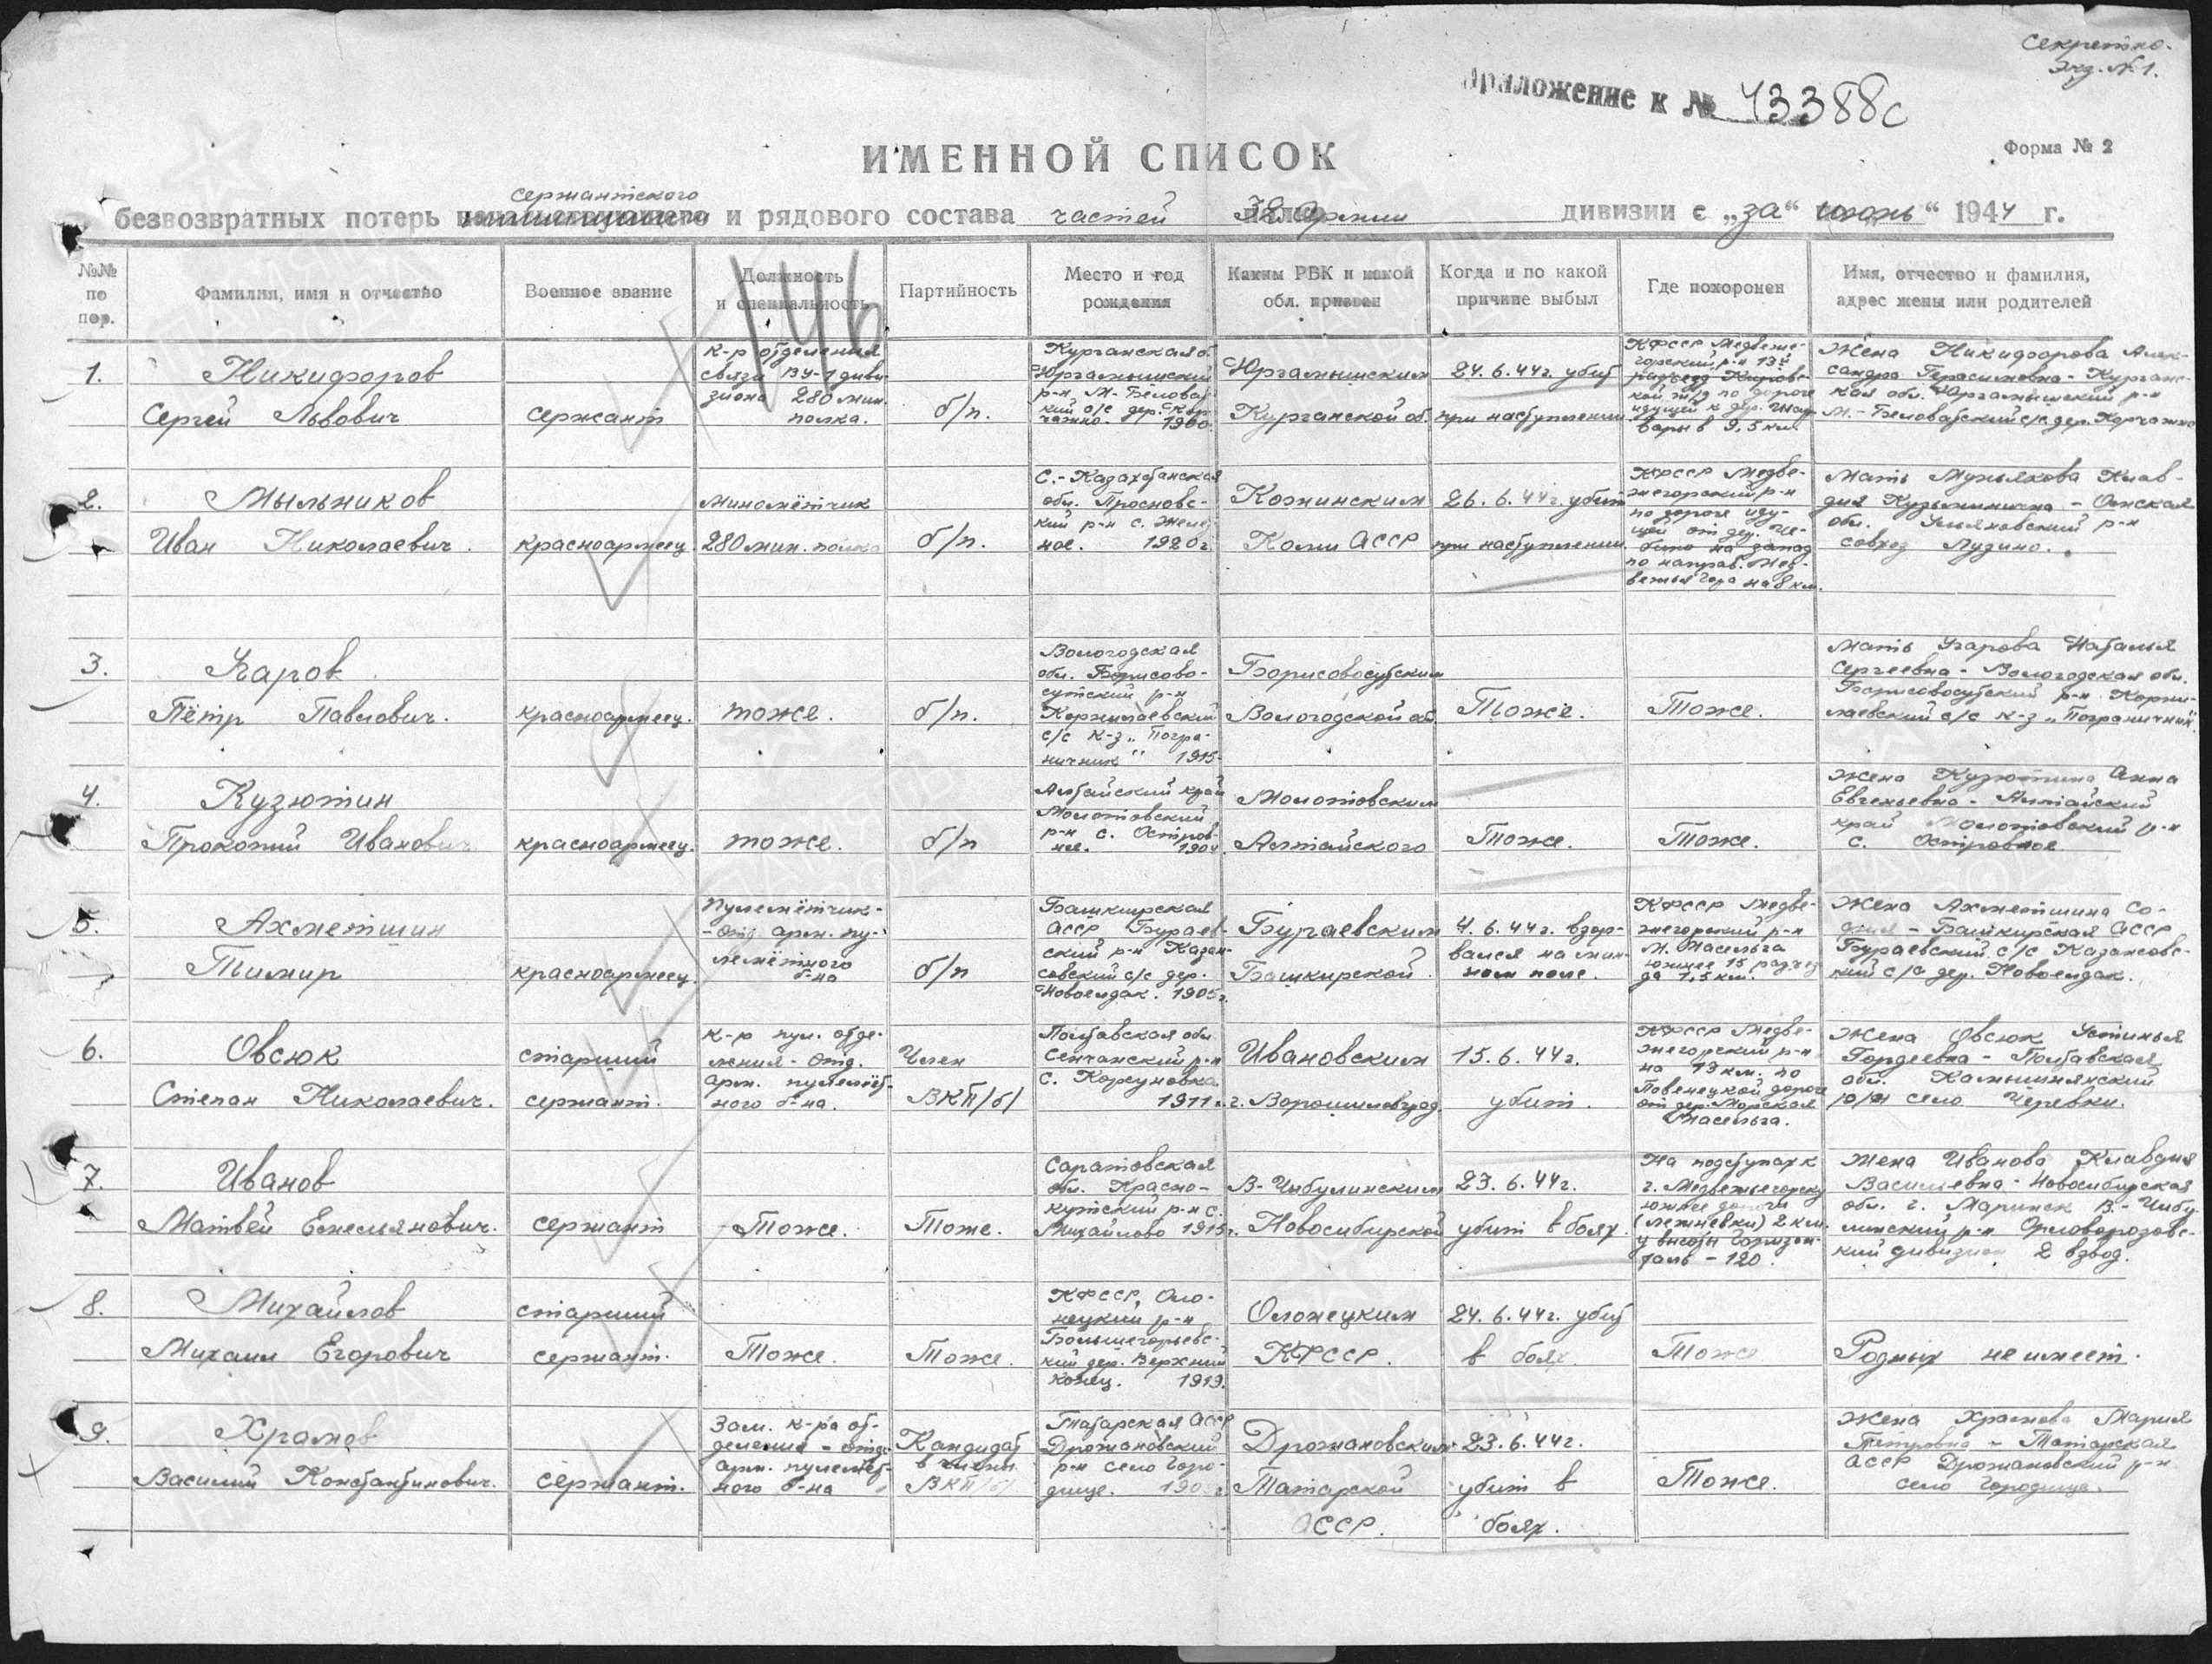 Секретно.
Экз. № 1.
Приложение к № 43388с
Форма № 2
ИМЕННОЙ СПИСОК
сержантского
безвозвратных потерь и рядового состава частей 32 армии дивизии с „за“ июнь“ 1944 г.
№№ по пор.
Фамилия, имя и отчество
Военное звание
Должность и специальность
146
Партийность
Место и год рождения
Каким РВК и какой обл. призван
Когда и по какой причине выбыл
Где похоронен
Имя, отчество и фамилия, адрес жены или родителей
1.
Никифоров
Сергей Львович
сержант
к-р отделения
связи ВУ-1 диви-
зиона 280 мин.
полка.
б/п.
Курганская о.
Юргамышский
р-н М-Беловод-
ский с/с дер.
1900.
Юргамышским
Курганской об.
24.6.44г. убит
при наступлении.
КФССР Медвеже-
горский р-н 13й
разъезд Кировс-
кой ж/д по дороге
идущей к дер.
9,5 км.
Жена Никифорова Алек-
сандра Герасимовна - Курганс-
кая обл. Юргамышский р-н
2.
Мыльников
Иван Николаевич.
красноармеец
миномётчик
280 мин. полка
б/п.
С.-Казахстанская
обл. Пресновс-
кий р-н с. Желез-
ное. 1920г.
Кожинским
Коми АССР
26.6.44г. убит
при наступлении.
КФССР Медве-
жегорский р-н
по дороге иду-
щей от дер. Че-
бино на запад
по направ. Мед-
вежья Гора на 8 км.
Мать Клав-
дия Кузьминична - Омская
обл. Ульяновский р-н
совхоз Лузино.
3.
Угаров
Пётр Павлович.
красноармеец.
тоже.
б/п.
Вологодская
обл. Борисово-
судский р-н
с/с к-з „Погра-
ничник“ 1915
Борисовосудским
Вологодской об.
Тоже.
Тоже.
Мать Угарова Наталья
Сергеевна - Вологодская обл.
Борисовосудский р-н
с/с к-з „Пограничник“.
4.
Кузютин
Прокопий Иванович
красноармеец.
тоже.
б/п
Алтайский край
Молотовский
р-н с. Остров-
ное. 1904
Молотовским
Алтайского
Тоже.
Тоже.
Жена Кузютина Анна
Евгеньевна - Алтайский
край Молотовский р-н
с. Островное.
5.
Ахметшин
Тимир
красноармеец.
Пулемётчик-
- отд. арм. пу-
лемётного
б-на
б/п
Башкирская
АССР Бураев-
ский р-н Казан-
совский с/с дер.
1905г.
Бураевским
Башкирской
4.6.44г. взор-
вался на мин-
ном поле.
КФССР Медве-
жегорский р-н
М. Масельга
южнее 15 разъез-
да 1,5 км.
Жена Ахметшина Со-
- Башкирская АССР
Бураевский с/с Казансовс-
кий с/с дер.
6.
Овсюк
Степан Николаевич.
старший
сержант.
к-р пул. отде-
ления - отд.
арм. пулемёт-
ного б-на.
Член
ВКП/б/
Полтавская обл.
Сенчанский р-н
с. Корсуновка
1911 г.
Ивановским
г. Ворошиловград
15.6.44г.
убит.
КФССР Медве-
жегорский р-н
на 13 км. по
Повенецкой дороге
от дер. Морская
Масельга.
Жена Овсюк Устинья
Гордеевна - Полтавская
обл. Камышнянский
р/он село Черевки.
7.
Иванов
Матвей Емельянович.
сержант
Тоже.
Тоже.
Саратовская
обл. Красно-
кутский р-н с.
Михайлово 1915г.
В-Чибулинским
Новосибирской
23.6.44г.
убит в боях.
На подступах к
г. Медвежьегорску
южнее дороги
(лежнёвки) 2 км.
у высоты горизон-
таль - 120.
Жена Иванова Клавдия
Васильевна - Новосибирская
обл. г. Мариинск В.-Чибу-
линский р-н Орловорозовс-
кий дивизион 2 взвод.
8.
Михайлов
Михаил Егорович
старший
сержант.
Тоже.
Тоже.
КФССР, Оло-
нецкий р-н
кий дер. Верхний
конец. 1919.
Олонецким
КФССР.
24.6.44г. убит
в боях
Тоже
Родных не имеет.
9.
Храмов
Василий Константинович.
сержант.
Зам. к-ра от-
деления - отд.
арм. пулемёт-
ного б-на
Кандидат
в члены
ВКП/б/
Татарская АССР
Дрожановский
р-н село Горо-
дище.
Дрожановским
Татарской
АССР.
23.6.44г.
убит в
боях.
Тоже.
Жена Храмова Мария
Петровна - Татарская
АССР Дрожановский р-н
село Городище.